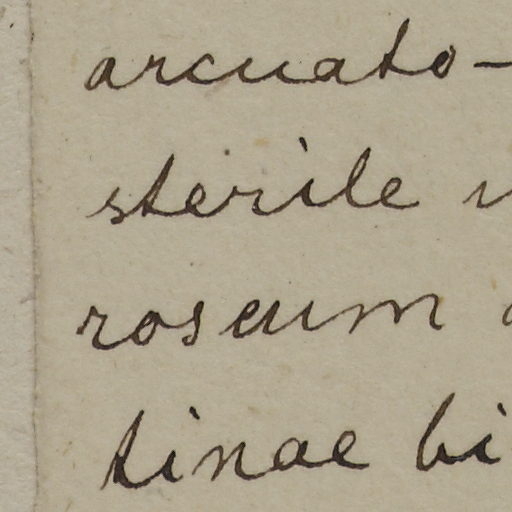 arcuato-
sterile
roseum
tinae bi